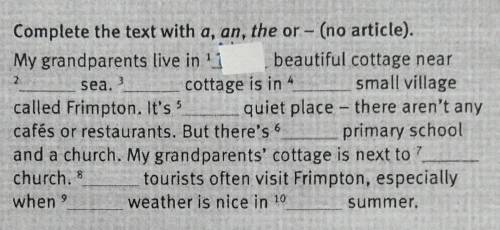 Complete the text with a, an, the or – (no article).
My grandparents live in 1 beautiful cottage near
2______ sea. 3______ cottage is in 4______ small village
called Frimpton. It's 5______ quiet place – there aren't any
cafés or restaurants. But there's 6______ primary school
and a church. My grandparents' cottage is next to 7______
church. 8______ tourists often visit Frimpton, especially
when 9______ weather is nice in 10______ summer.